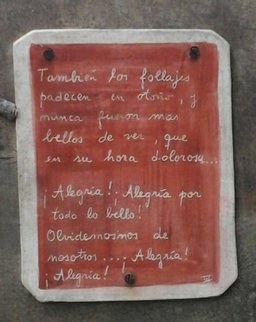 También los follajes
padecen en otoño, y
nunca fueron mas
bellos de ver, que
en su hora dolorosa...
¡Alegría! ¡Alegría por
todo lo bello!
Olvidemosnos de
nosotros.... ¡Alegría!
¡Alegría!